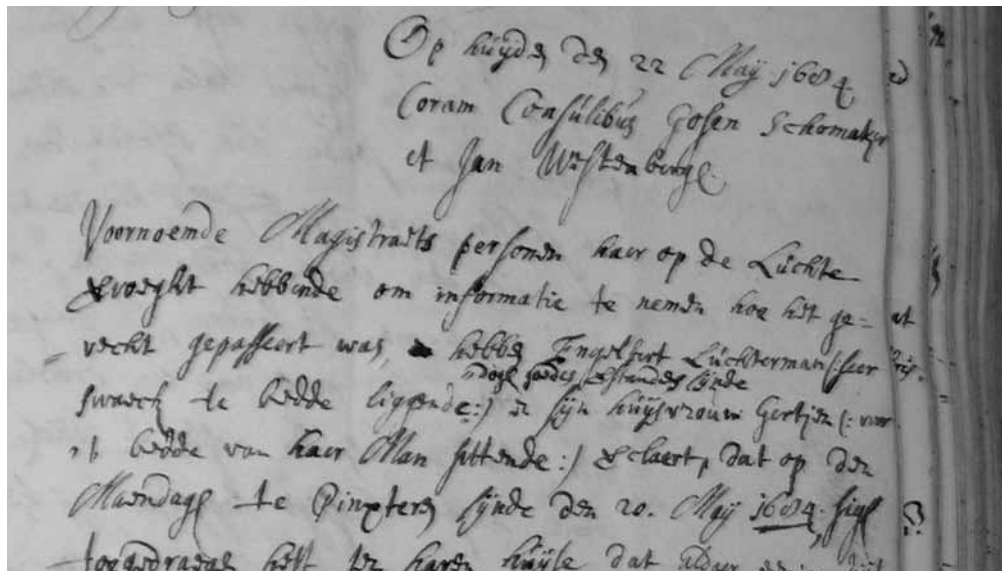 Op huijden den 22 Maij 1684
Coram Consulibus Gosen Schomaker
et Jan Westenbergh.
Voornoemde Magistraets personen haer op de Lüchte
vervoeght hebbende om informatie te nemen hoe het ge=
vecht gepasseert was, hebben Engelbert Lüchterman (: seer
doch goedes verstandes sijnde
swack te bedde liggende :) en sijn huijsvrouw Gertjen (: voor
't bedde van haer Man sittende :) verclaert, dat op den
Maendagh te Pinxteren sijnde den 20. Maij 1684. sigh
toegedraege heft ten haren huijse dat aldaer